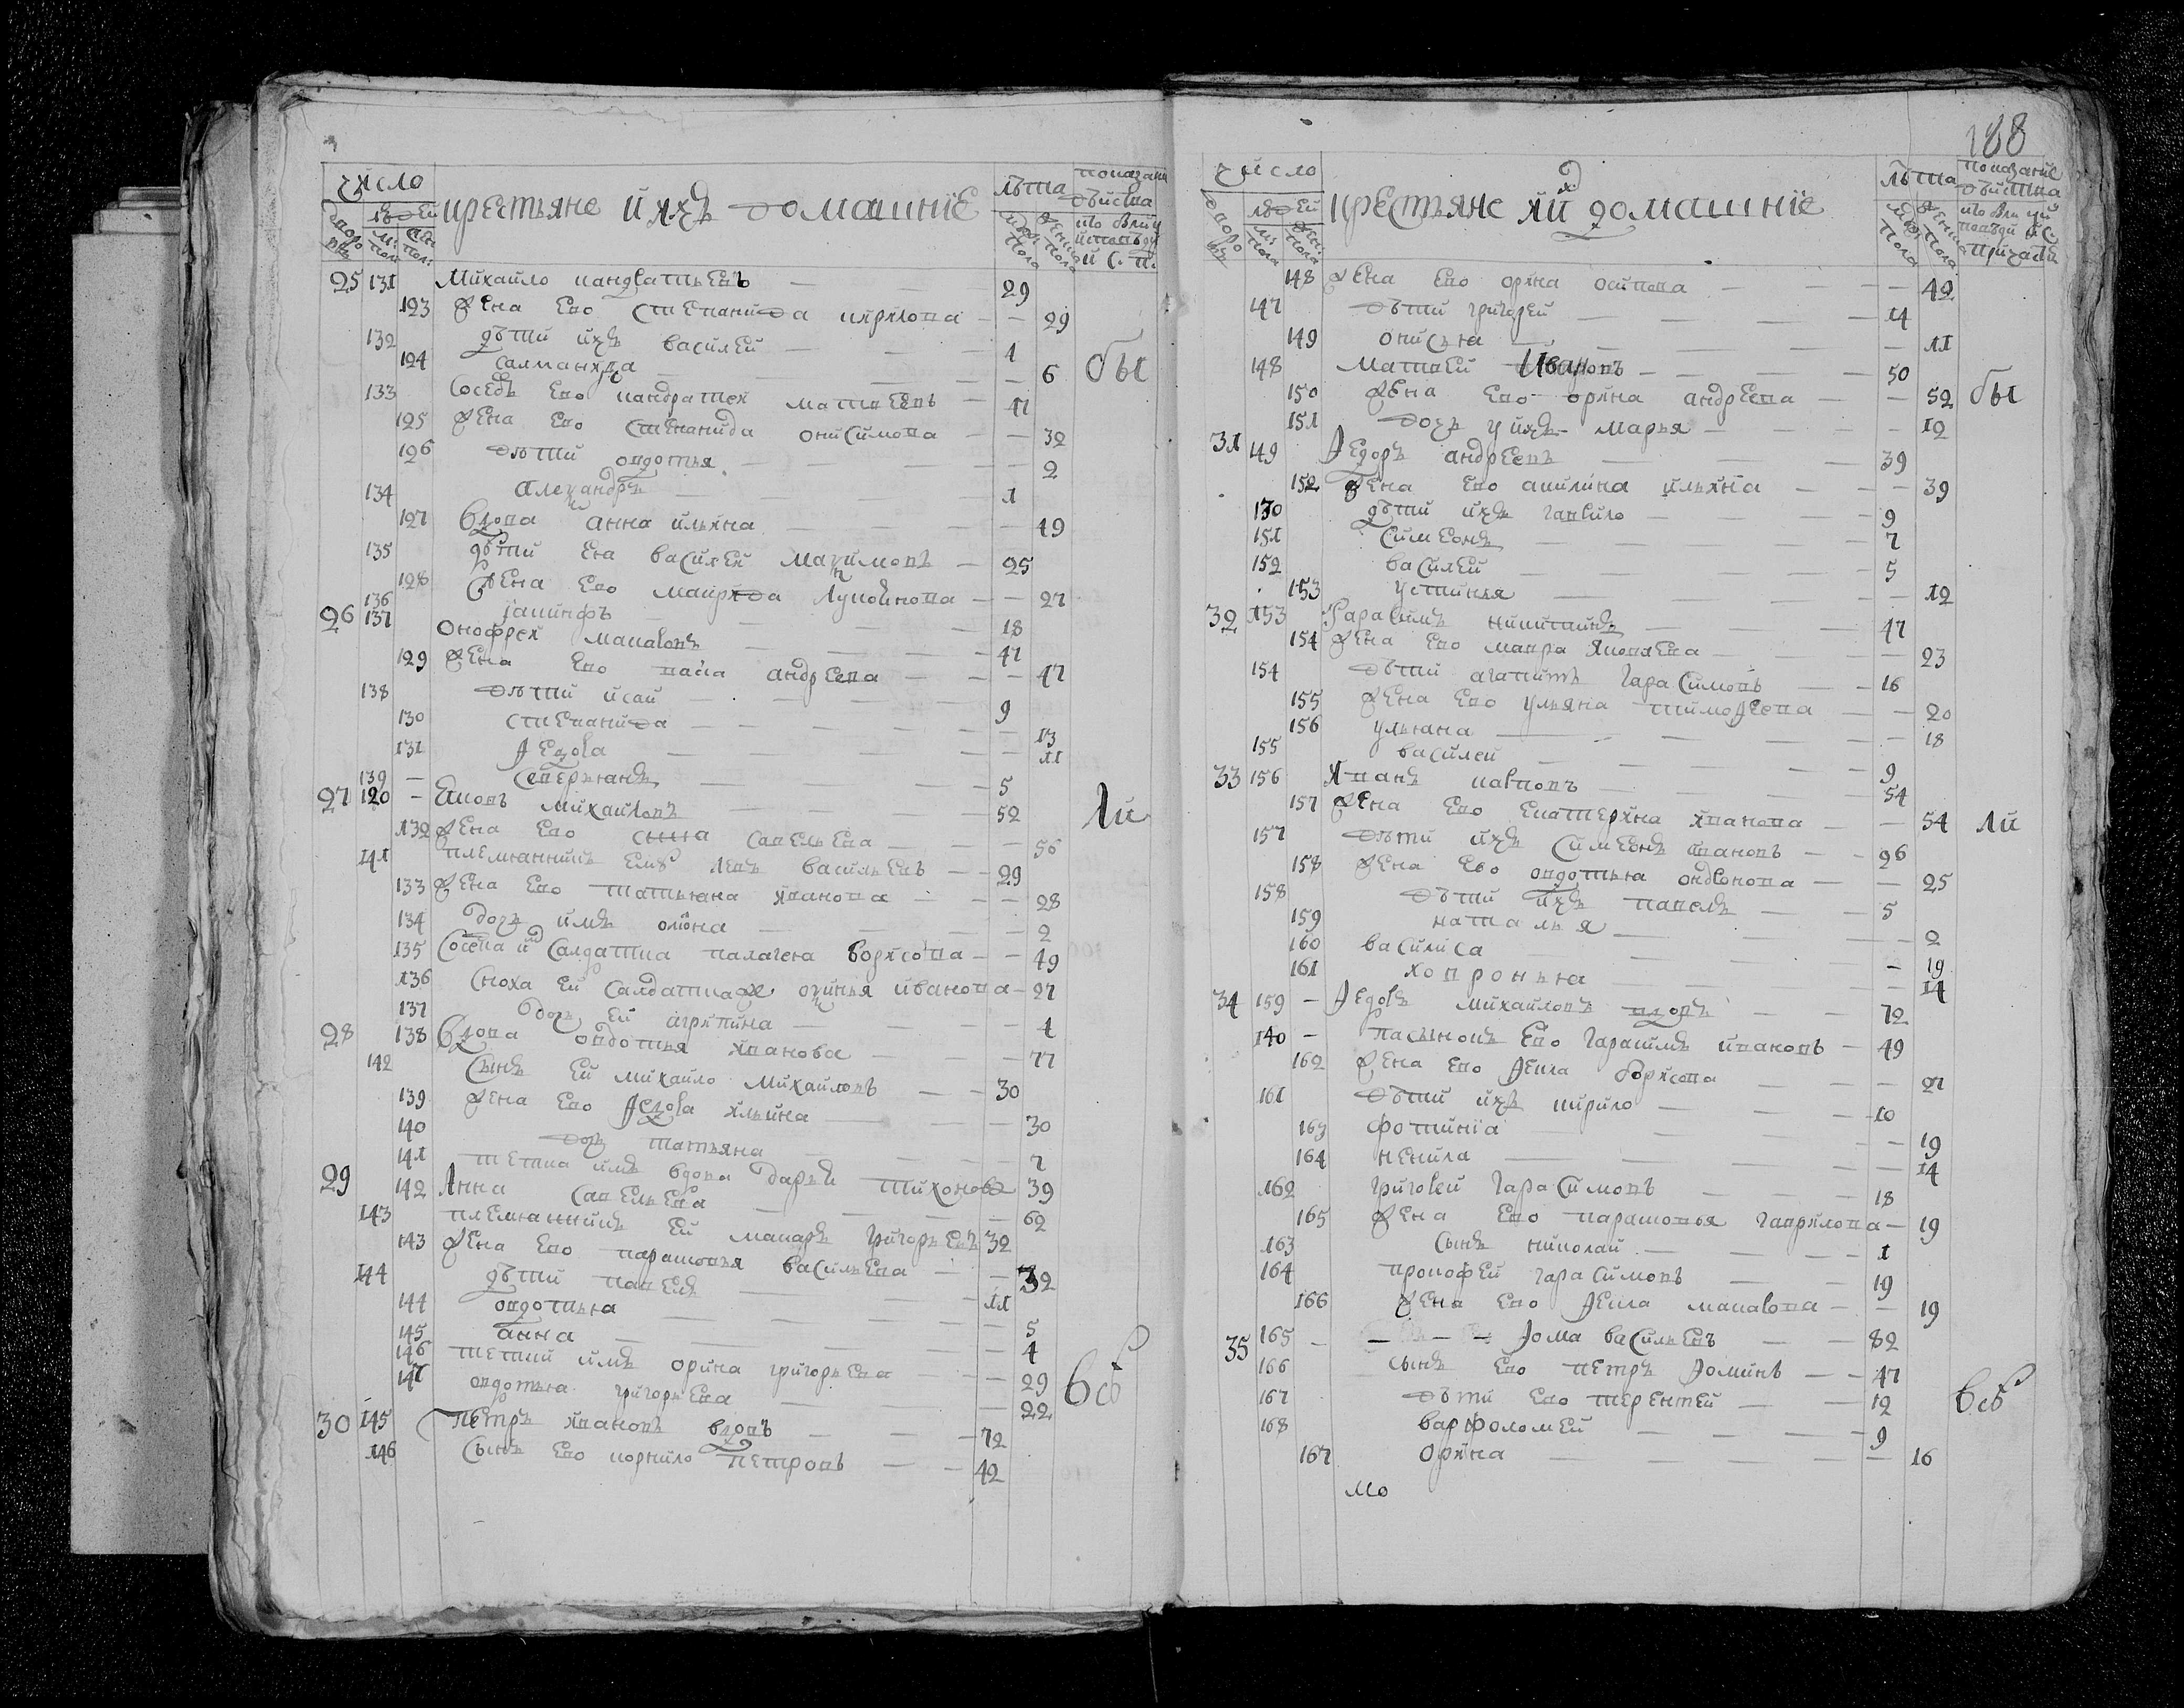 число крестьяне и ихъ домашнїе лѣта показанїе дѣйства
дворовъ людей мужеска пола женска пола кто былъ у исповѣди и с. п.
25 131 Михайло кандратьевъ — 29
123 жена ево степанида кирилова — 29
132 дѣти ихъ василей — 1
124 саламанида — 6 бы
133 соседъ ево кандратей матвеевъ — 41
125 жена ево степанида онисимова — 32
126 дѣти овдотья — 2
134 александръ — 1
127 вдова анна ильина — 49
135 дѣти ея василей максимовъ — 25
128 жена ево мавр 27
136 18
26 137 Онофрей макаровъ — 41
129 жена ево андреева — 47
138 дѣти исай — 9
130 степанида — 13
131 федора — 11
139 — северьянъ — 5
27 120 — михайловъ — 52 ли
132 жена ево савельева — 56
141 племянникъ ему левъ васильевъ — 29
133 жена ево татьяна иванова — 28
134 дочь имъ 2
135 салдатка палагея борисова — 49
136 сноха ей салдатка иванова — 27
137 дочь ей агрипина — 4
28 138 вдова овдотья иванова — 77
142 сынъ ей михайло михайловъ — 30
139 жена ево федора ильина — 30
140 дочь татьяна — 7
141 тетка имъ вдова дарья тихонова 39
29 142 Анна савельева — 62
143 племянникъ ей макаръ григорьевъ 32
143 жена ево парасковья васильева — 32
144 дѣти павелъ — 11
144 овдотья — 5
145 анна — 4
146 тетки имъ орина григорьева — 29 всѣ
147 овдотья григорьева — 22
30 145 Петръ ивановъ вдовъ — 72
146 сынъ ево корнило петровъ — 42
188
число крестьяне и ихъ домашнїе лѣта показанїе дѣйства
дворовъ людей мужеска пола женска пола
148 жена ево орина осипова — 42
147 дѣти григорей — 14
149 онисья — 11
148 матвей Ивановъ — 50
150 жена ево орина андреева — 52 бы
151 дочь у ихъ марья — 12
31 149 Федоръ андреевъ — 39
152 жена ево акилина ильина — 39
130 дѣти ихъ гаврило — 9
151 симеонъ — 7
152 василей — 5
153 устинья — 12
32 153 Гарасимъ никитинъ — 47
154 жена ево мавра яковлева — 23
154 дѣти агапитъ гарасимовъ — 16
155 жена ево ульяна тимофеева — 20
156 ульяна — 18
155 василей — 9
33 156 Иванъ карповъ — 54
157 жена ево екатерина иванова — 54 ли
157 дѣти ихъ симеонъ ивановъ — 26
158 жена ево овдотья 25
158 дѣти ихъ павелъ — 5
159 наталья — 2
160 василиса — 19
161 ховронья — 14
34 159 — Федоръ михайловъ вдовъ — 72
140 — пасынокъ ево гарасимъ ивановъ — 49
162 жена ево фекла борисова — 27
161 дѣти ихъ кирило — 10
163 фотинїа — 19
164 ненила — 14
162 григорей гарасимовъ — 18
165 жена ево парасковья гаврилова — 19
163 сынъ николай — 1
164 прокофей гарасимовъ — 19
166 жена ево фекла макарова — 19
35 165 — фома васильевъ — 82
166 сынъ ево петръ фоминъ — 47
167 дѣти ево терентей — 12 всѣ
168 варфоломей — 9
167 орина — 16
мо